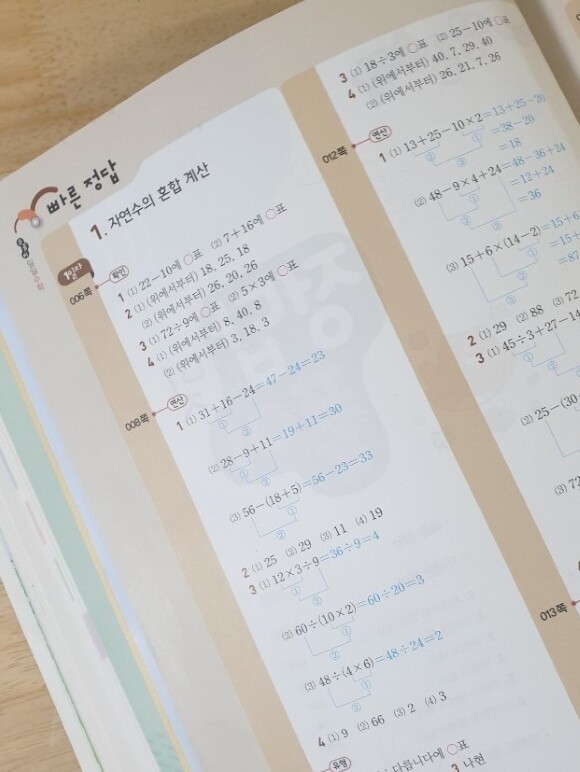 빠른 정답
1. 자연수의 혼합 계산
1일차
006쪽
확인
1 (1) 22-10에 ○표 (2) 7+16에 ○표
2 (1) (위에서부터) 18, 25, 18
(2) (위에서부터) 26, 20, 26
3 (1) 72÷9에 ○표 (2) 5×3에 ○표
4 (1) (위에서부터) 8, 40, 8
(2) (위에서부터) 3, 18, 3
008쪽
연산
1 (1) 31+16-24=47-24=23
①
②
(2) 28-9+11=19+11=30
①
②
(3) 56-(18+5)=56-23=33
①
②
2 (1) 25 (2) 29 (3) 11 (4) 19
3 (1) 12×3÷9=36÷9=4
①
②
(2) 60÷(10×2)=60÷20=3
①
②
(3) 48÷(4×6)=48÷24=2
①
②
4 (1) 9 (2) 66 (3) 2 (4) 3
유형
다릅니다에 ○표
3 나현
3 (1) 18÷3에 ○표 (2) 25-10에 ○표
4 (1) (위에서부터) 40, 7, 29, 40
(2) (위에서부터) 26, 21, 7, 26
012쪽
연산
1 (1) 13+25-10×2=13+25-20
=38-20
=18
①
②
③
(2) 48-9×4+24=48-36+24
=12+24
=36
①
②
③
(3) 15+6×(14-2)=15+6
=15+
=87
①
②
③
2 (1) 29 (2) 88 (3) 72
3 (1) 45÷3+27-14
①
②
(2) 25-(30
(3) 72
013쪽